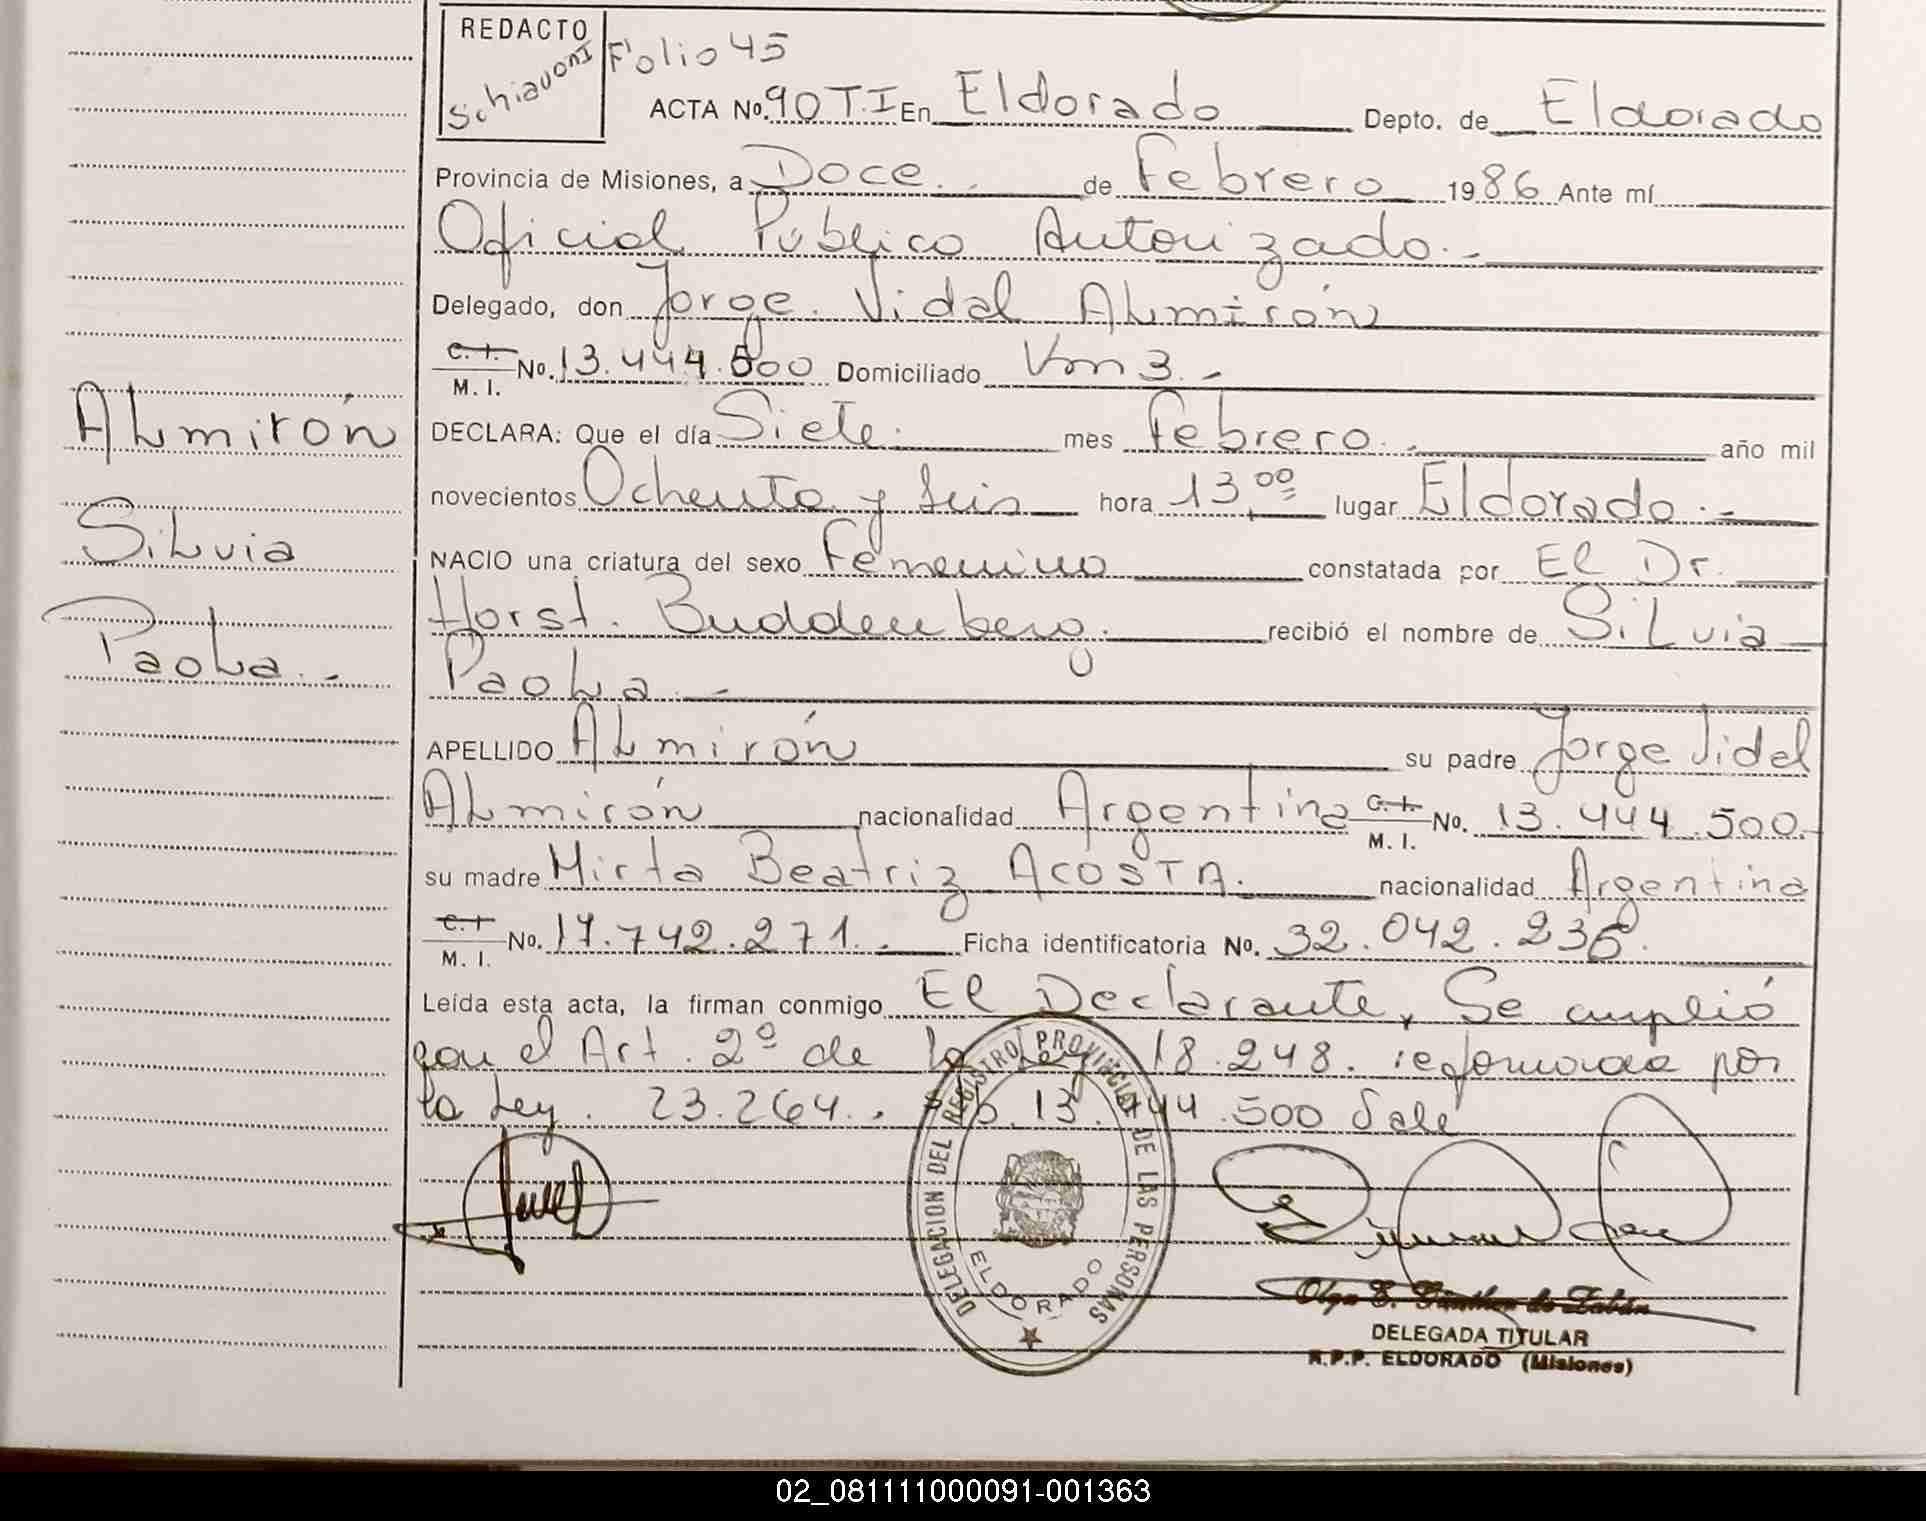 REDACTO
Schiavoni
Folio 45
ACTA No. 90 T.I En Eldorado Depto. de Eldorado
Provincia de Misiones, a Doce.- de Febrero 1986 Ante mí
Oficial Público Autorizado.-
Delegado, don Jorge Vidal ALmirón
C. I. M. I. No. 13.444.500 Domiciliado Km 3.-
ALmirón
SiLvia
PaoLa.-
DECLARA: Que el día Siete. mes Febrero.- año mil
novecientos Ochenta y Seis hora 13,00 lugar Eldorado.-
NACIO una criatura del sexo Femenino constatada por El Dr.
Horst. Buddenberg. recibió el nombre de SiLvia
PaoLa.-
APELLIDO ALmirón su padre Jorge Vidal
ALmirón nacionalidad Argentina C. I. M. I. No. 13.444.500.-
su madre Mirta Beatriz ACOSTA. nacionalidad Argentina
C. I M. I. No. 17.742.271.- Ficha identificatoria No. 32.042.236.
Leída esta acta, la firman conmigo El Declarante, Se cumplió
con el Art. 2º de la Ley 18.248. reformada por
la Ley. 23.264.. 13.444.500 Vale
DELEGACION DEL REGISTRO PROVINCIAL DE LAS PERSONAS
ELDORADO
Olga E. Günther de
DELEGADA TITULAR
R.P.P. ELDORADO (Misiones)
02_081111000091-001363